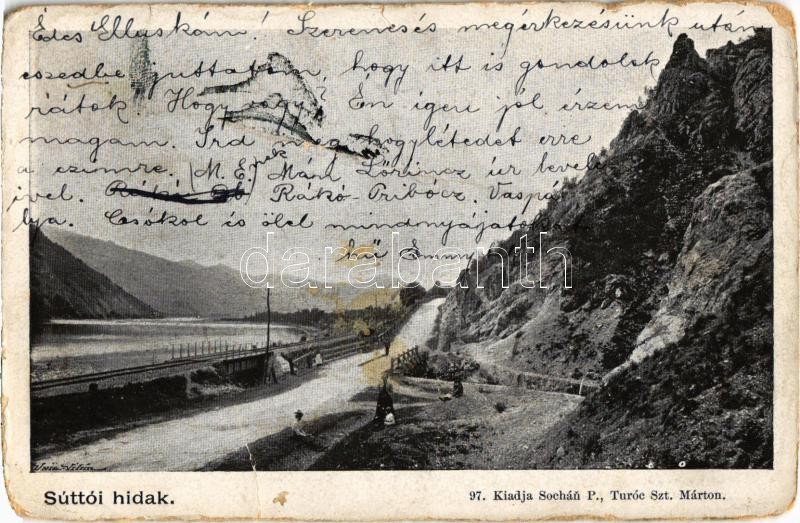 Édes Elluskám! Szerencsés megérkezésünk után
eszedbe juttatom, hogy itt is gondolok
rátok. Hogy vagy? Én igen jól érzem
magam. Ird meg hogylétedet erre
a czimre. (M. E.nek Mám Lőrincz úr
ivel. Rákó-Pribócz. Vaspá
lya. Csókol és ölel mindnyájatokat
hű Emmy
darabanth
Súttói hidak.
97. Kiadja Socháň P., Turóc Szt. Márton.